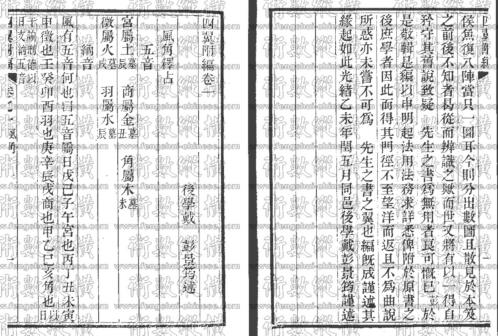 侯魚復八陣當只一圖耳今則分出數圖且散見於本笈
之前後不知者曷從而辨識之賦而世又將有以一得自
矜守其舊說致疑　先生之書為無用者良可慨已彭於
是敬輯是編以申明起法用法務求詳悉俾附於原書之
後庶學者因此而得其門徑不至望洋而返且不為曲說
所惑亦未嘗不可為　先生之書之翼也編既成謹述其
緣起如此光緒乙未年閏五月同邑後學戴彭景筠謹述
四翼附編卷一
後學戴　彭景筠述
風角釋占
五音
宮屬土墓辰　商屬金墓丑　角屬木墓未
徵屬火墓戌　羽屬水墓辰
納音
風有五音何也曰五音屬日戊己子午宮也丙丁丑未寅
申徵也壬癸卯酉羽也庚辛辰戌商也甲乙巳亥角也日